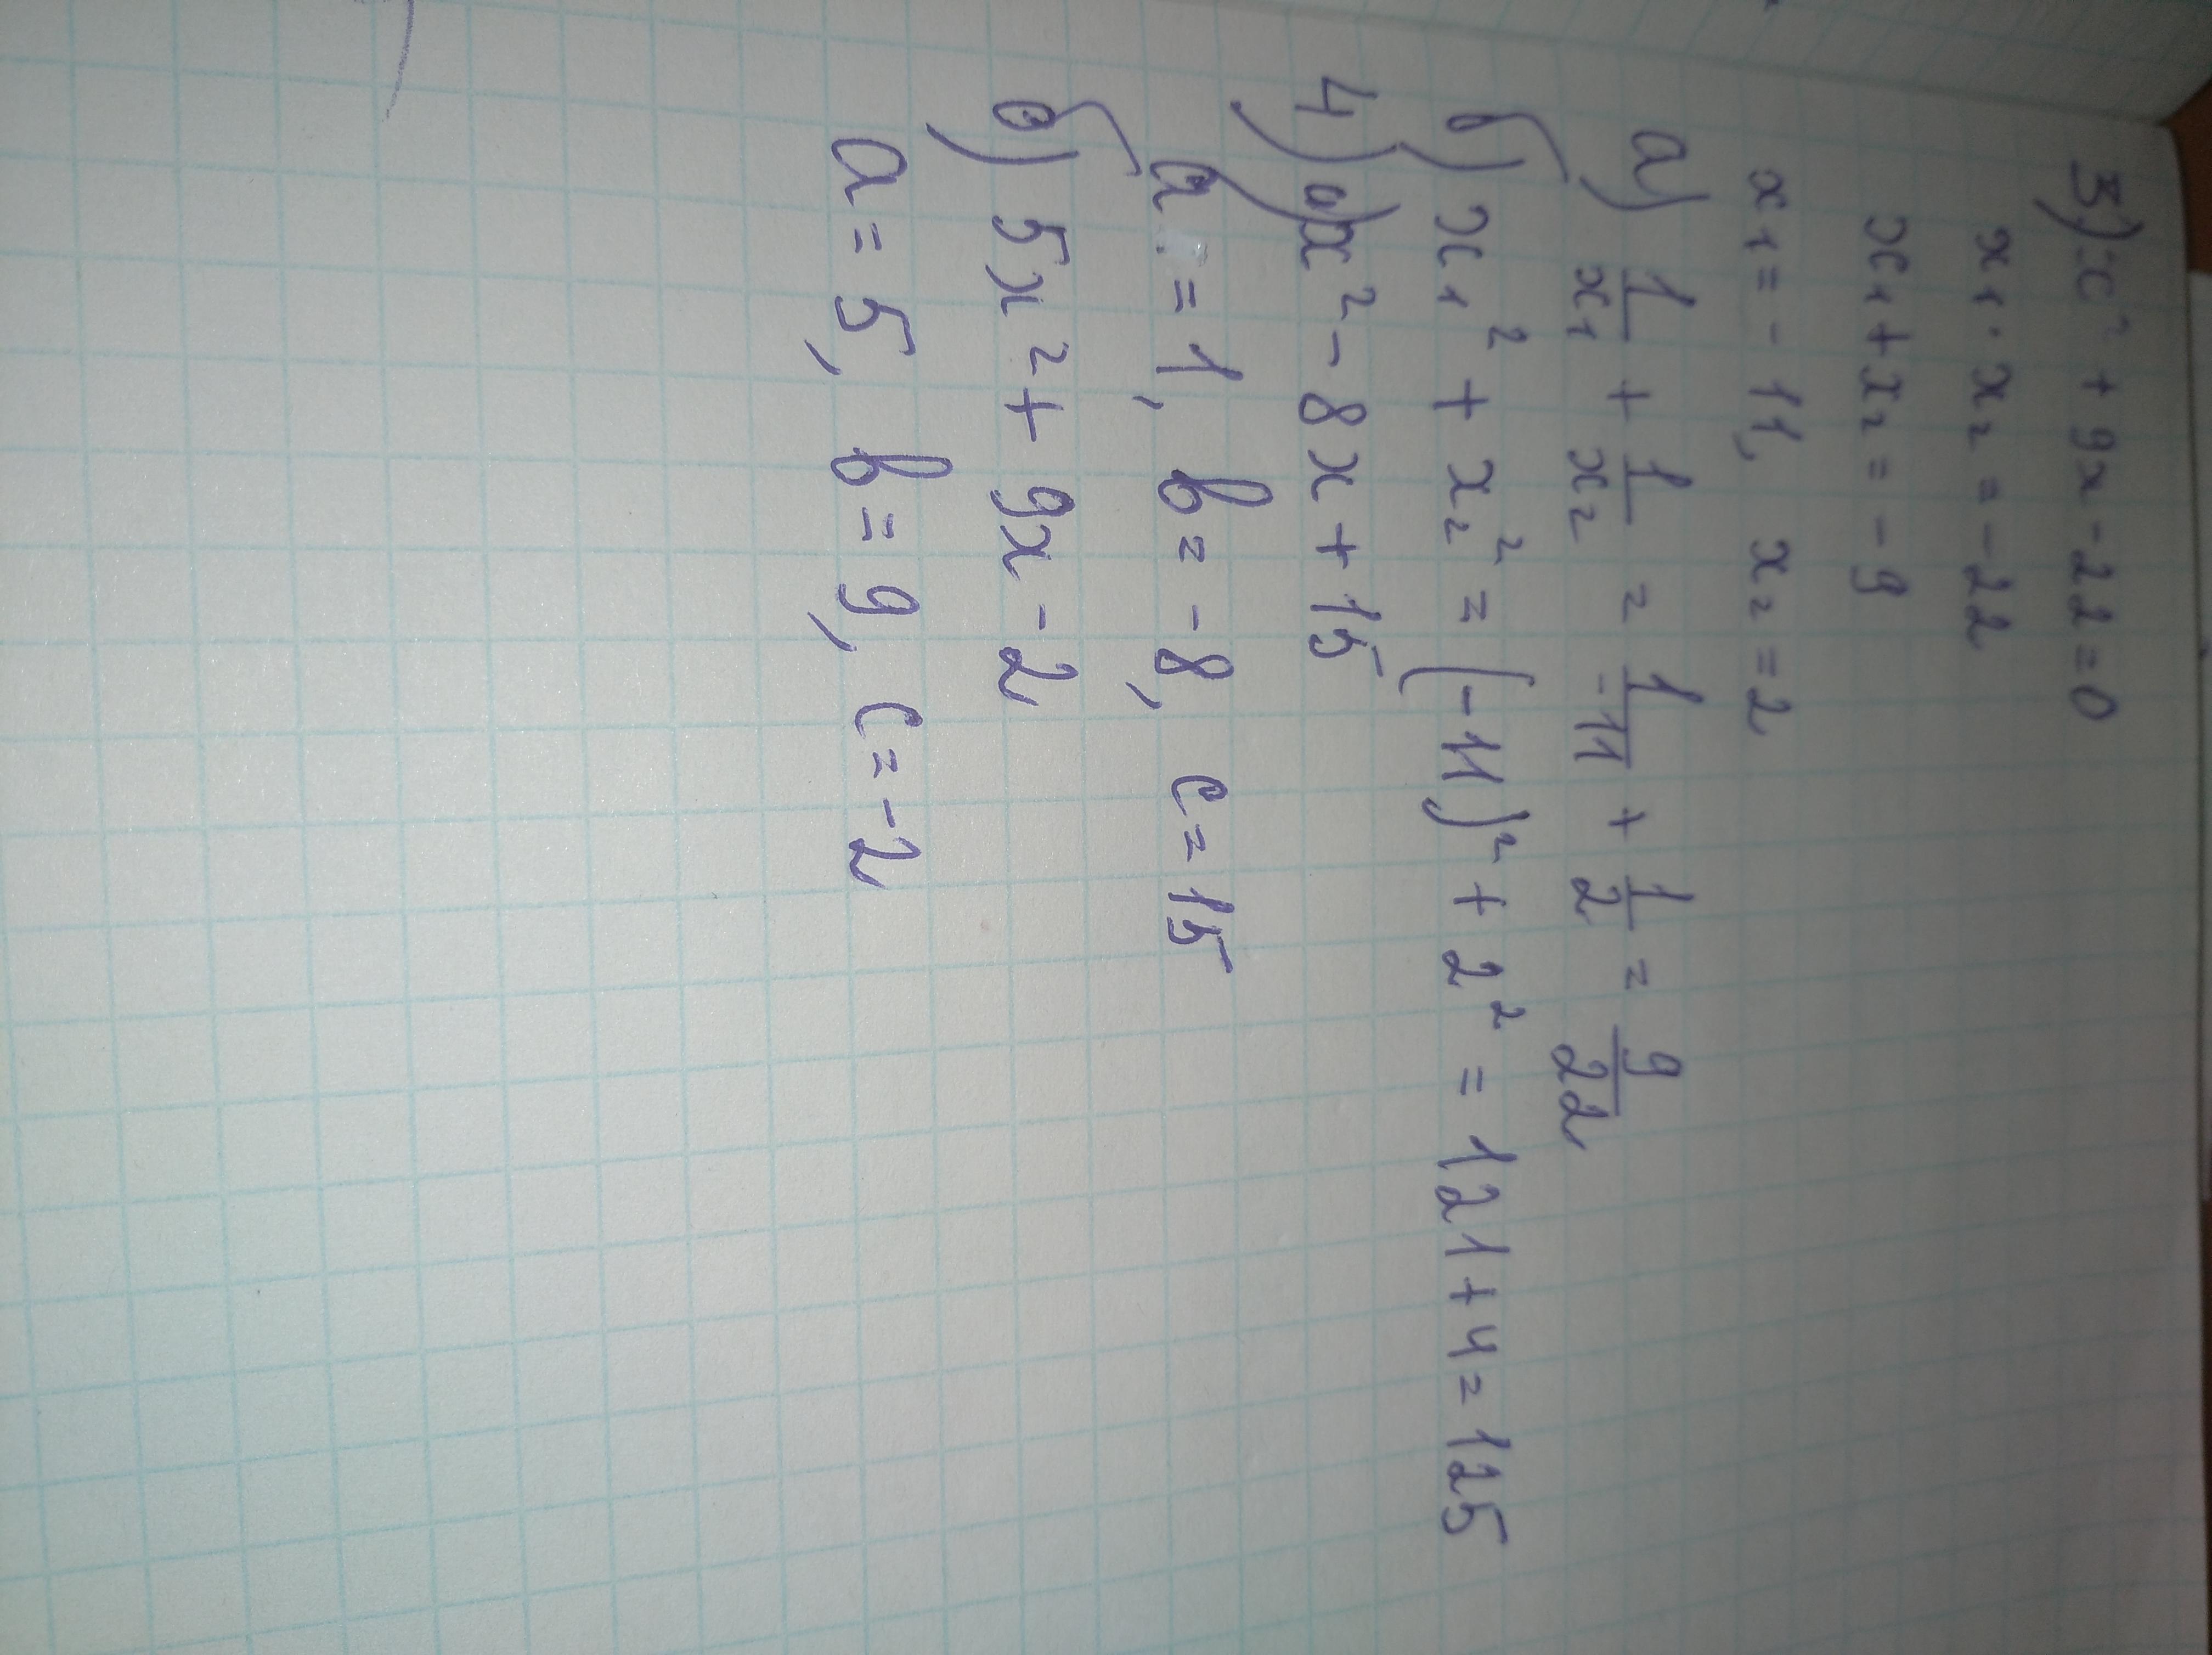 3) x² + 9x - 22 = 0
x₁ · x₂ = - 22
x₁ + x₂ = - 9
x₁ = - 11, x₂ = 2
а) 1/x₁ + 1/x₂ = 1/-11 + 1/2 = 9/22
б) x₁² + x₂² = (-11)² + 2² = 121 + 4 = 125
4) а) x² - 8x + 15
a = 1, b = - 8, c = 15
б) 5x² + 9x - 2
a = 5, b = 9, c = - 2